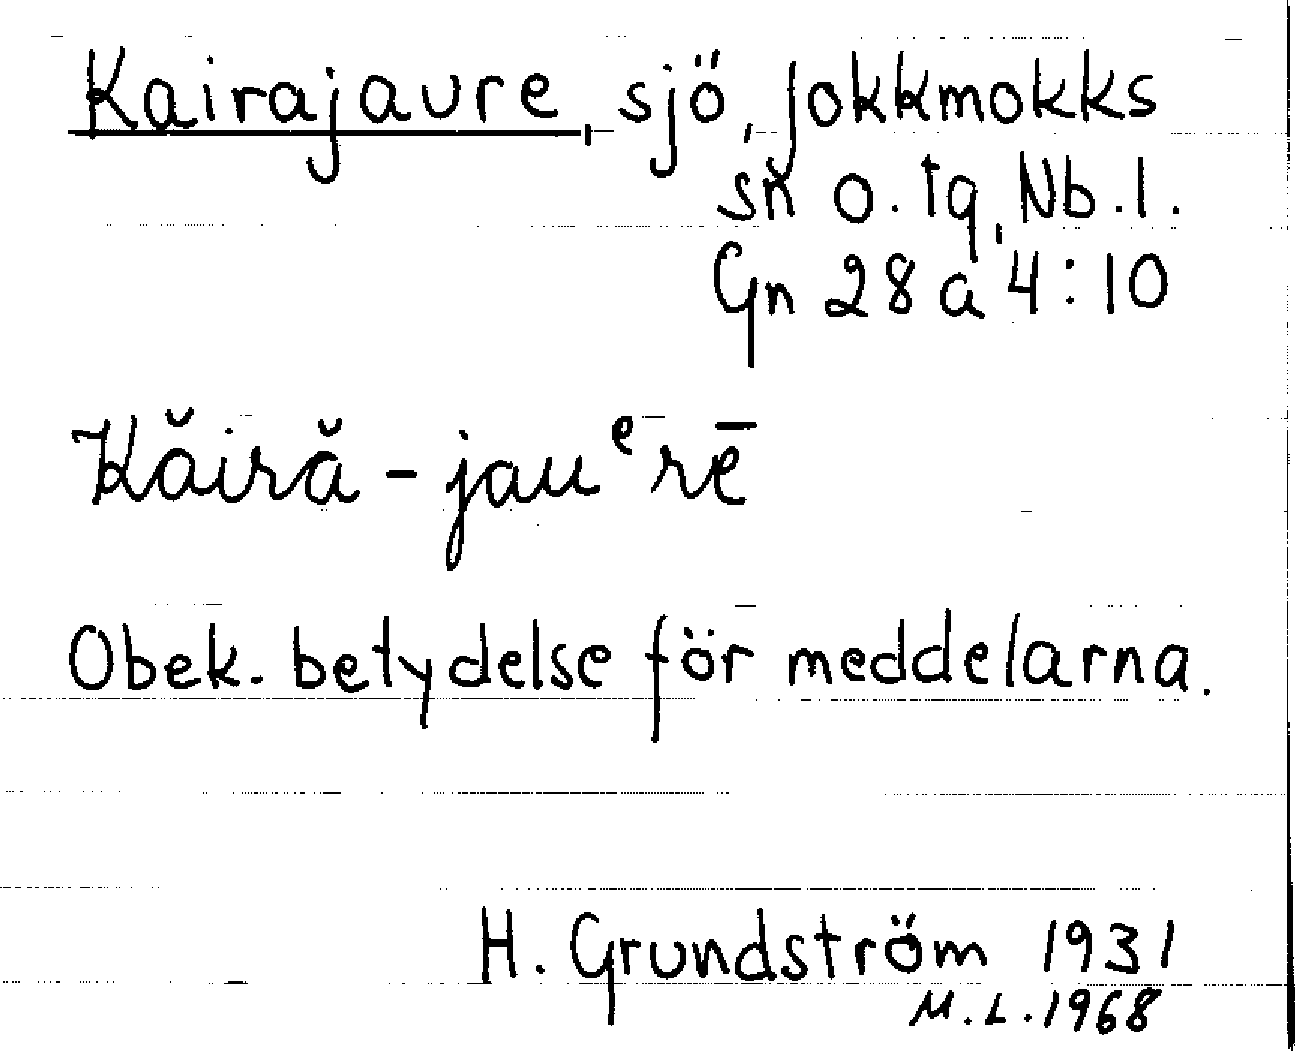 Kairajaure, sjö, Jokkmokks
sn o. tg, Nb.l.
Gn 28 a 4:10
Kăiră-jauᵉrē
Obek. betydelse för meddelarna.
H. Grundström 1931
M.L. 1968